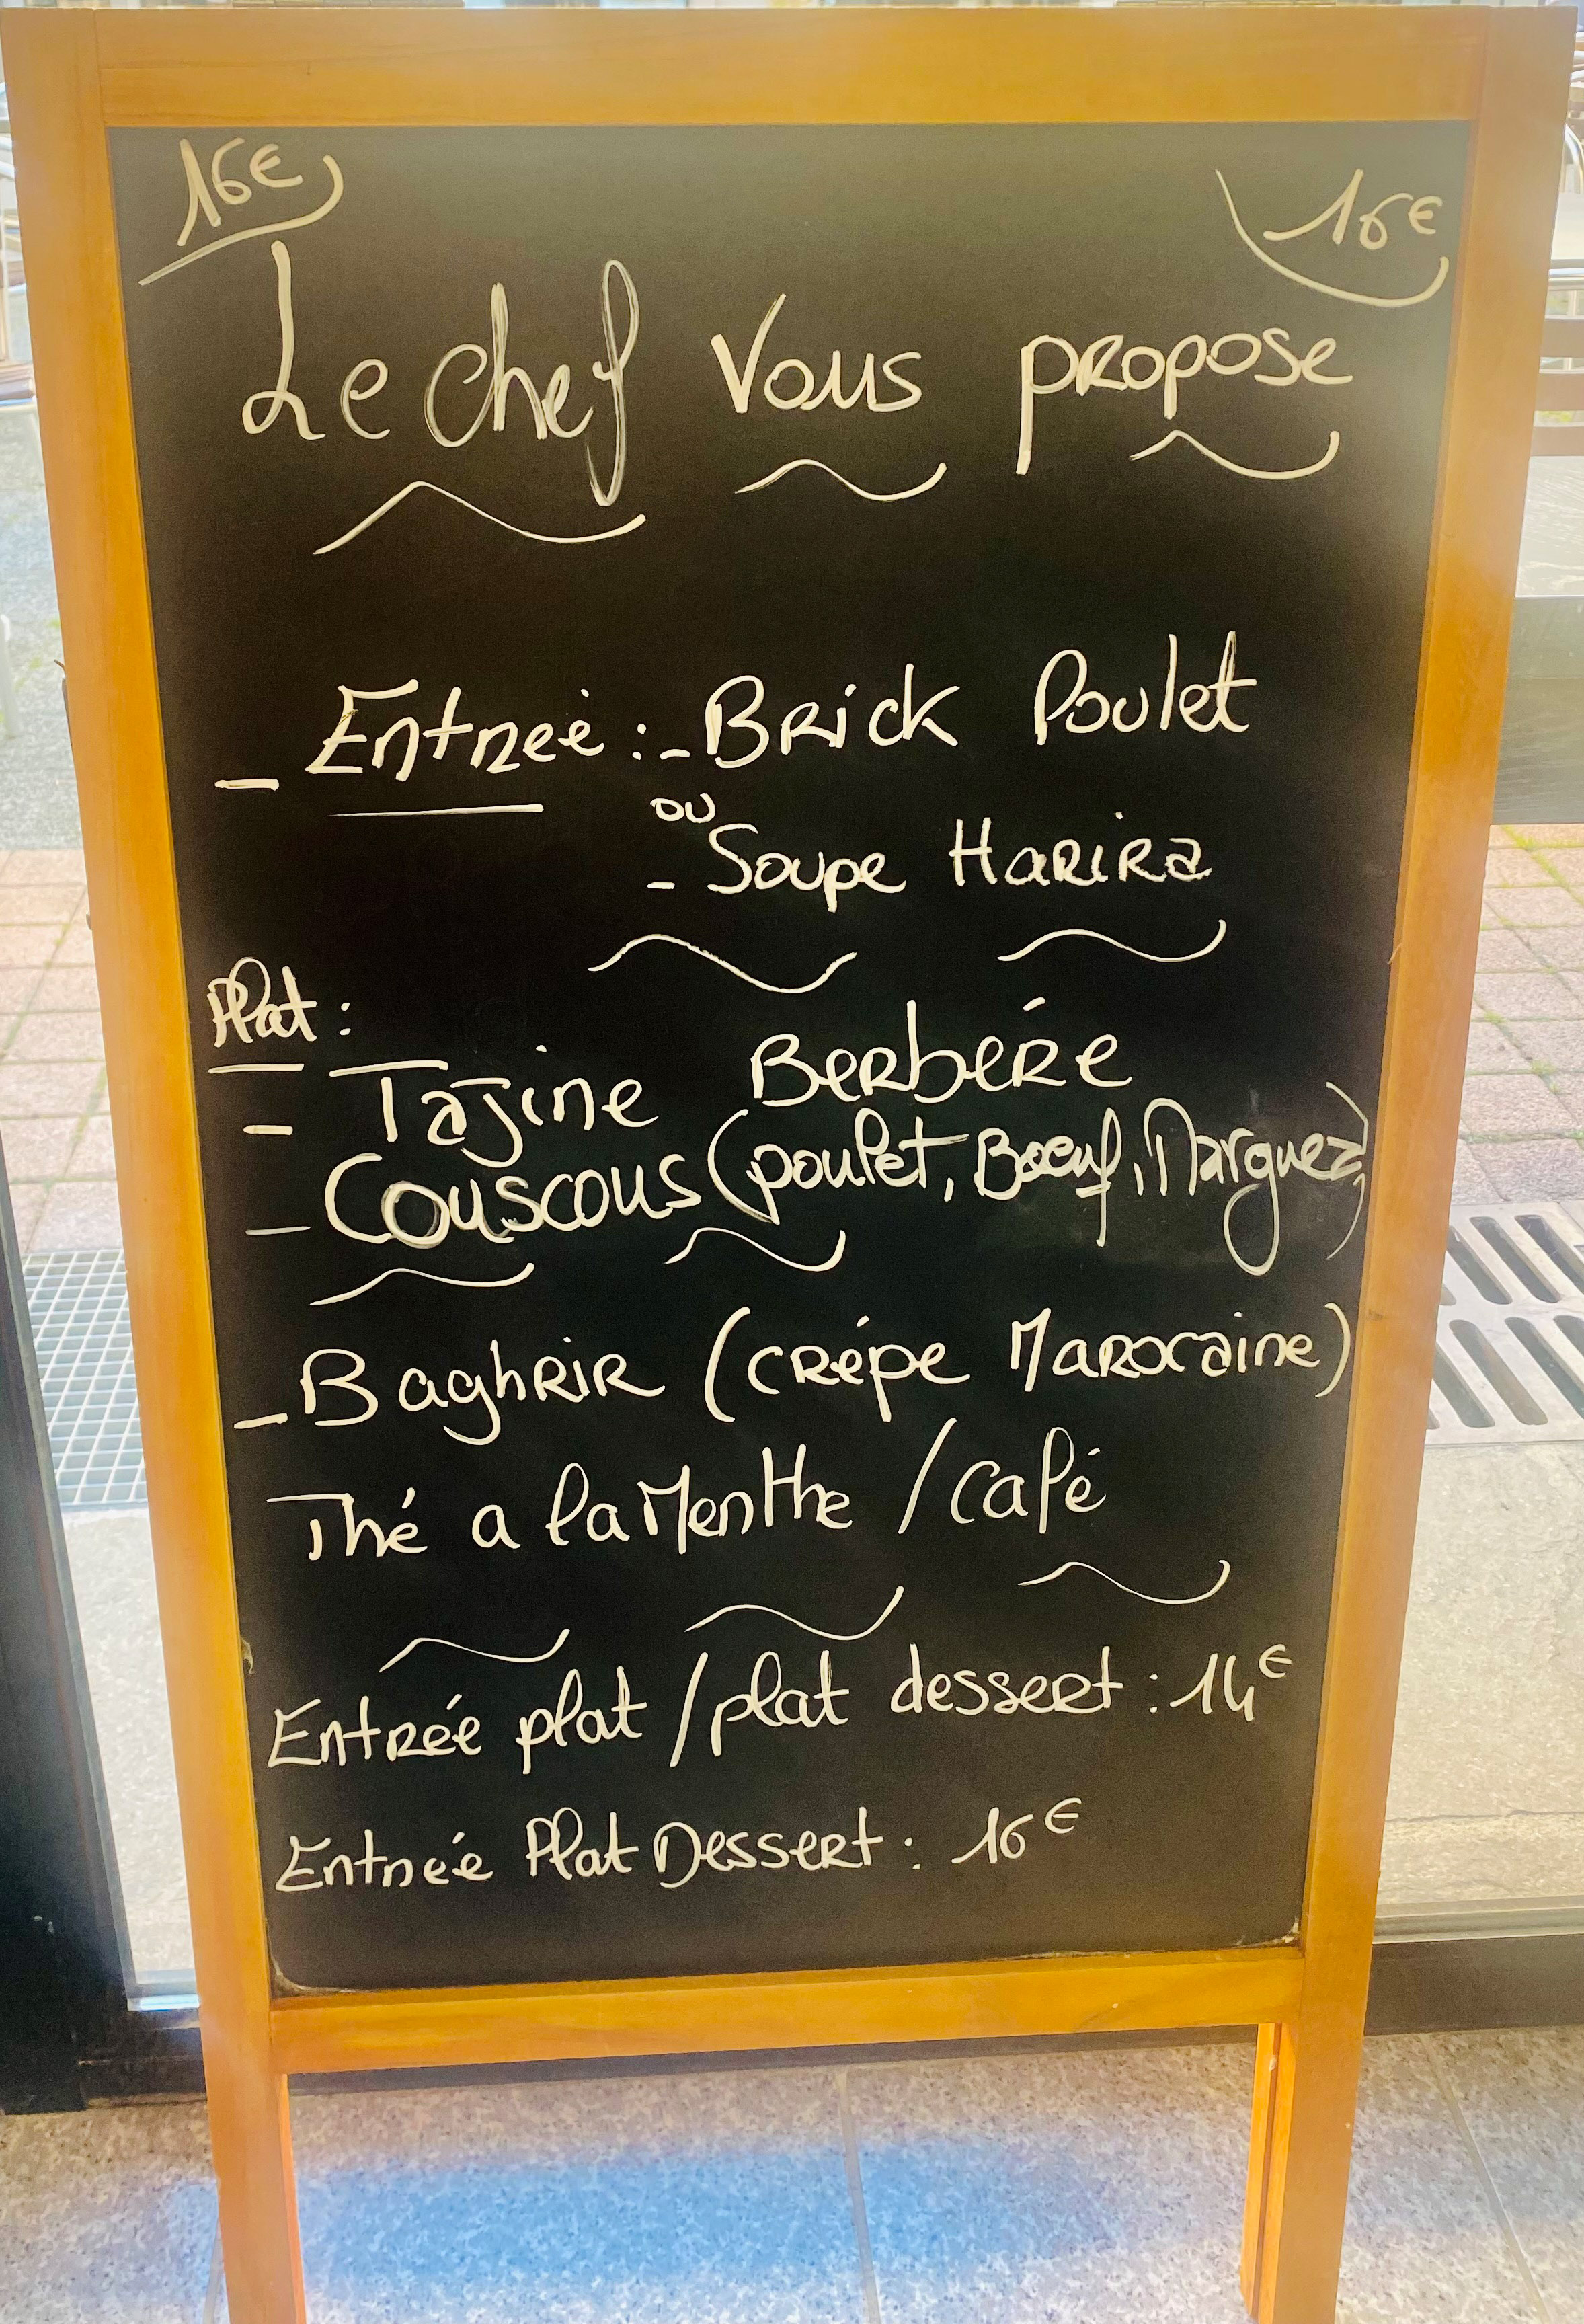 16€
16€
Le chef Vous propose
- Entrée : - Brick Poulet
ou
- Soupe Harira
Plat :
- Tajine Berbére
- Couscous (poulet, Boeuf, Marguez)
- Baghrir (crépe Marocaine)
Thé a la Menthe / Café
Entrée plat / plat dessert : 14€
Entrée Plat Dessert : 16€